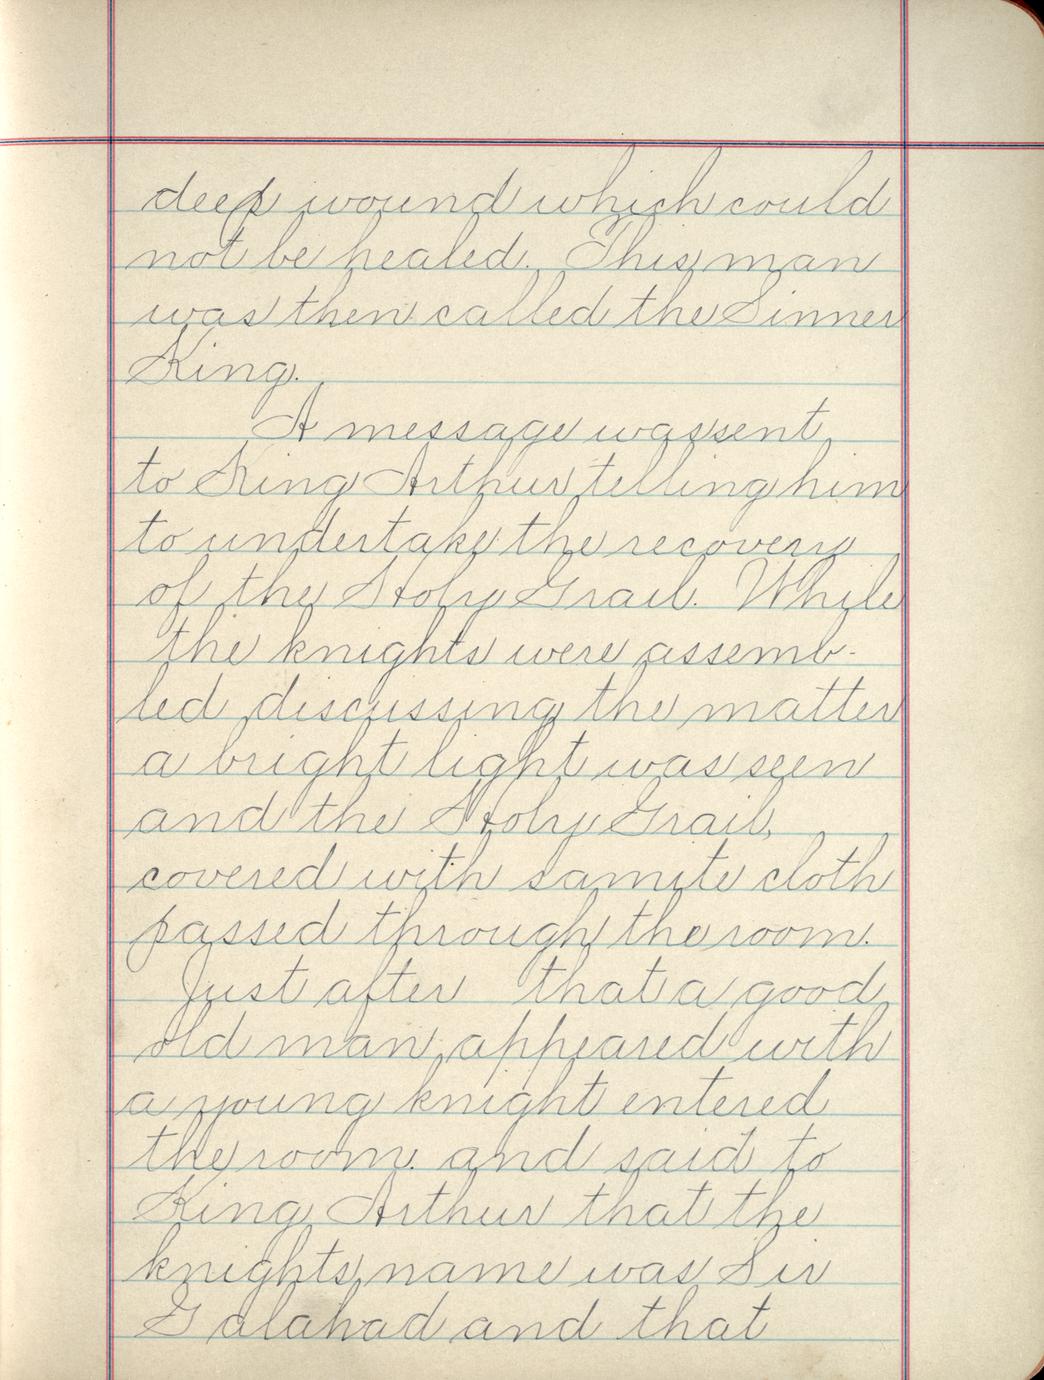 deep wound which could
not be healed. This man
was then called the Sinner
King.
A message was sent
to King Arthur telling him
to undertake the recovery
of the Holy Grail. While
the knights were assemb-
led discussing the matter
a bright light was seen
and the Holy Grail,
covered with samite cloth
passed through the room.
Just after that a good
old man appeared with
a young knight entered
the room. and said to
King Arthur that the
knights name was Sir
Galahad and that